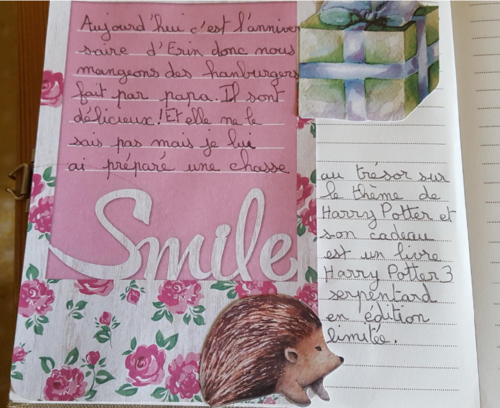 Aujourd'hui c'est l'anniver
saire d'Erin donc nous
mangeons des hamburgers
fait par papa. Il sont
délicieux! Et elle ne le
sais pas mais je lui
ai préparé une chasse
au trésor sur
le thème de
Harry Potter et
son cadeau
est un livre
Harry Potter 3
serpentard
en édition
limitée.
Smile